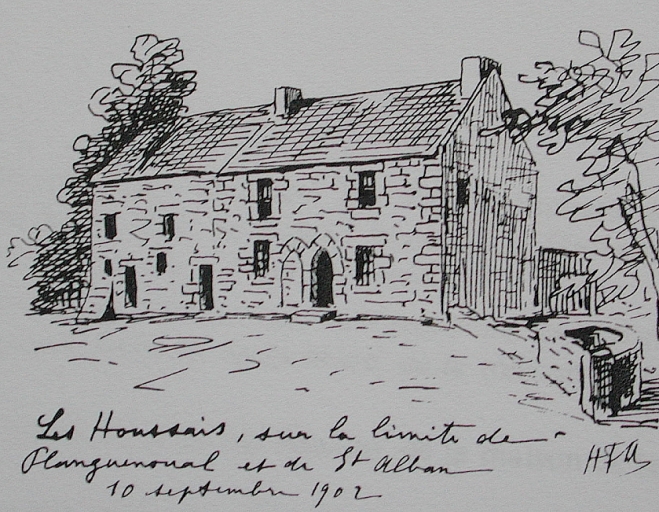 Les Houssais, sur la limite de
Planguenoual et de St Alban
10 septembre 1902
HFA